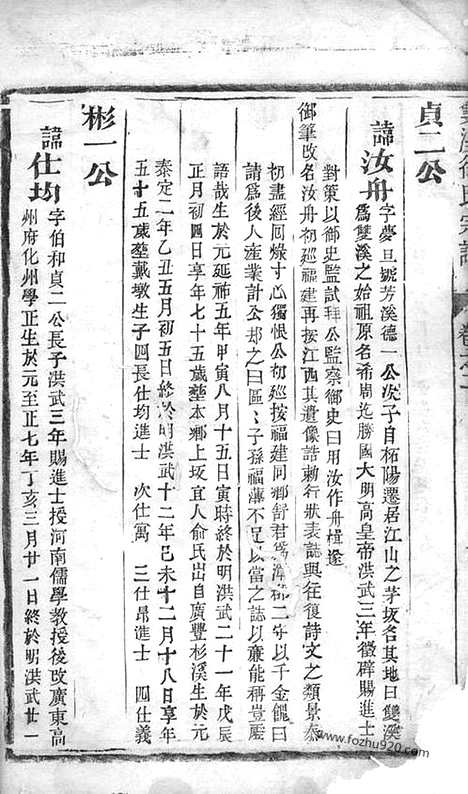 貞二公
諱汝舟字夢旦號芳溪德一公次子自柘陽遷居江山之茅坂各其地曰雙溪
為雙溪之始祖原名希周迄勝國大明高皇帝洪武三年徵辟賜進士
對策以御史監試拜公監察御史曰用汝作舟楫遂
御筆改名汝舟初巡福建再按江西其遺像誥勅行狀表誌與往復詩文之類景泰
初盡經回燬寸心獨恨公初巡按福建同鄉舒君 二 以千金餽曰
請為後人產業計公却之曰區區子孫福薄不足以當之誌以廉能稱豈虛
語哉生於元延祐五年甲寅八月十五日寅時終於明洪武二十一年戊辰
正月初四日享年七十五歲塟本鄉上坂宜人俞氏出自廣豐杉溪生於元
泰定二年乙丑五月初五日終於明洪武十二年己未十二月十八日享年
五十五歲塟戴墩生子四長仕均進士 次仕寓 三仕昂進士 四仕義
彬一公
諱仕均字伯和貞二公長子洪武三年賜進士授河南儒學教授後改廣東高
州府化州學正生於元至正七年丁亥三月廿一日終於明洪武廿一
www.fozhu920.com